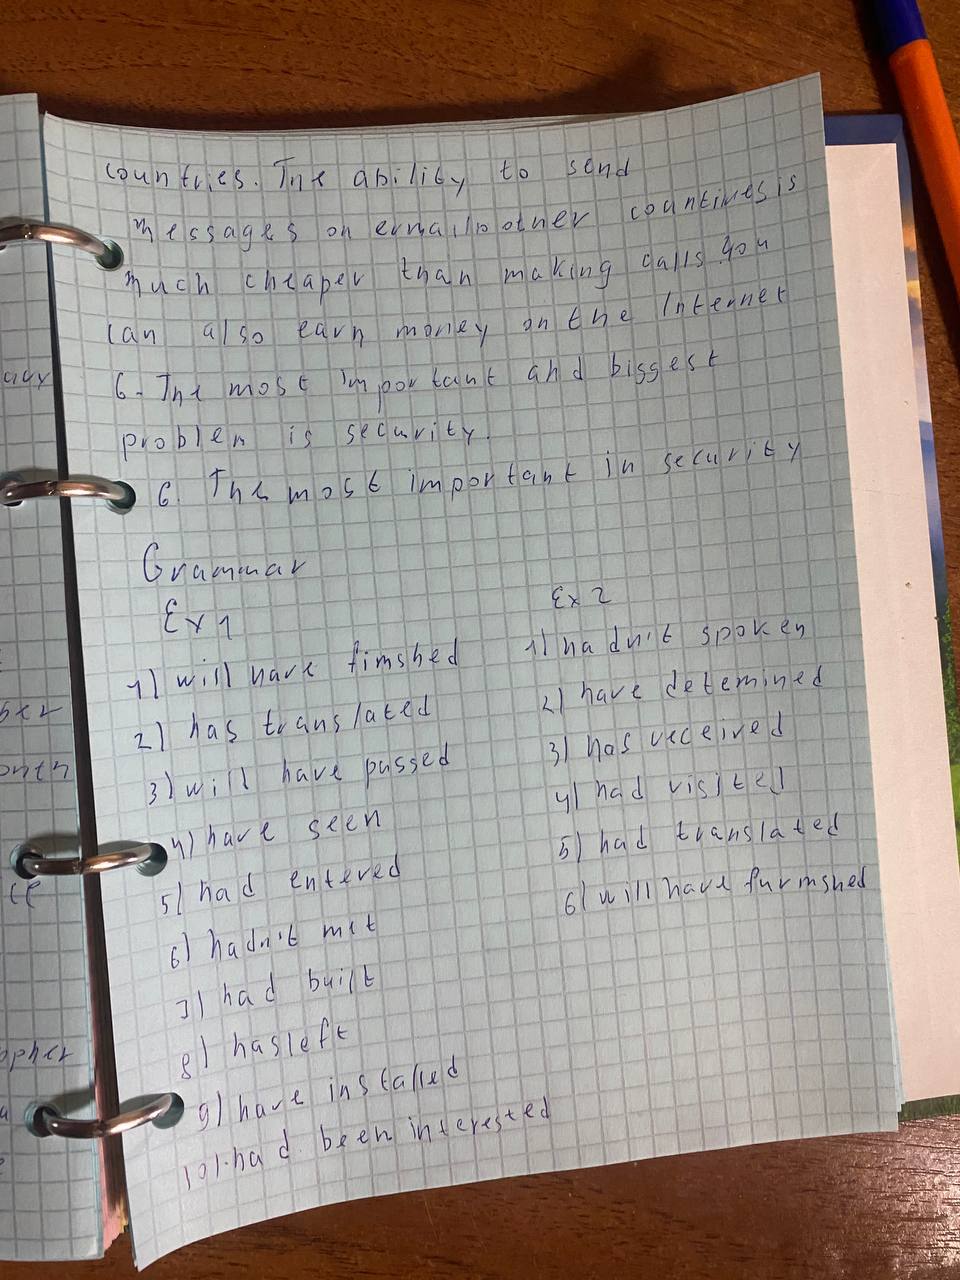 countries. The ability to send
messages on email to other countires is
much cheaper than making calls. You
can also earn money on the Internet
6 - The most important and biggest
problem is security.
6. The most important in security
Grammar
Ex 1
1) will have finished
2) has translated
3) will have passed
4) have seen
5) had entered
6) hadn't met
7) had built
8) has left
9) have installed
10) had been interested
Ex 2
1) hadn't spoken
2) have detemined
3) has received
4) had visited
5) had translated
6) will have furnished